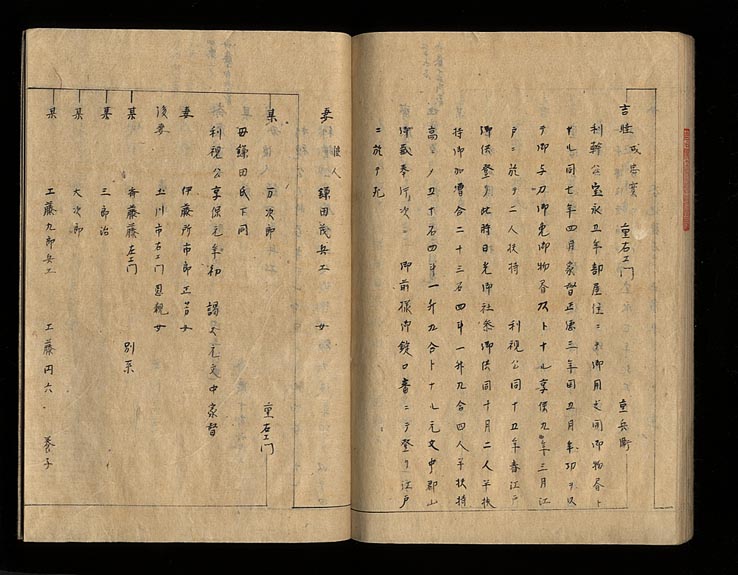 吉勝 或忠実 重右エ門 重兵衛
利幹公宝永五年部屋住ニ而御用犬間御物畚ト
ナル同七年四月家督正徳三年同五月年功ヲ以
テ御与刀御免御物畚双トナル享保九年三月江
戸ニ於テ二人扶持 利視公同十五年春江戸
御供登 此時日光御社参御供同十月二人半扶
持御加増合二十三石四斗一升九合四人半扶持
高 ノ五十石四斗一升九合トナル元文中郡山
御蔵奉行次ニ 御前様御鎖口番ニテ登リ江戸
ニ於テ死
妻 鎌田茂兵エ 女
某 万次郎 重右エ門
母鎌田氏下同
利視公享保元年初 謁ス元文中家督
妻 伊藤所市郎正吉女
後妻 玉川市右エ門恩親女
某 斉藤藤左エ門 別系
某 三郎治
某 大次郎
某 工藤九郎兵エ 工藤円六 養子